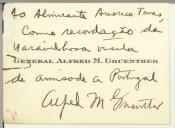 Ao Almirante Americo Tomas,
Como recordação da
Maravilhosa visita
GENERAL ALFRED M. GRUENTHER
de amisade a Portugal
Alfred M Gruenther